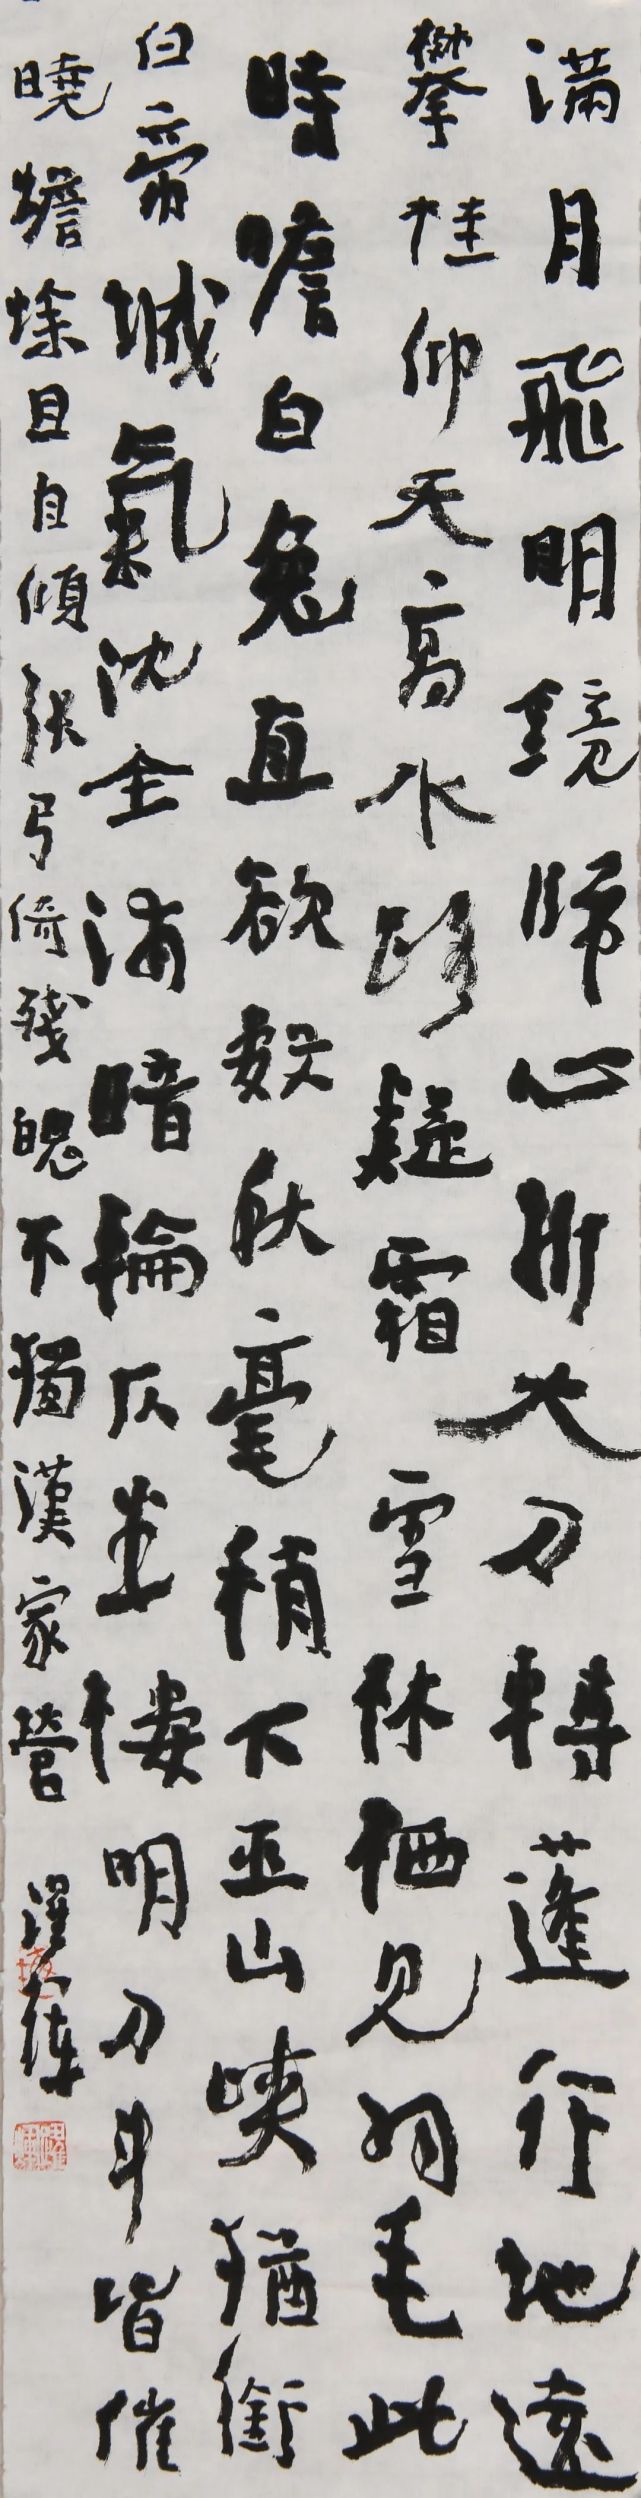 满月飛明鏡歸心折大刀轉蓬行地遠
攀桂仰天高水路疑霜雪林栖見羽毛此
時瞻白兔直欲數秋毫稍下巫山峽猶銜
白帝城氣沈全浦暗輪仄半樓明刀斗皆催
曉蟾蜍且自傾張弓倚殘魄不獨漢家營